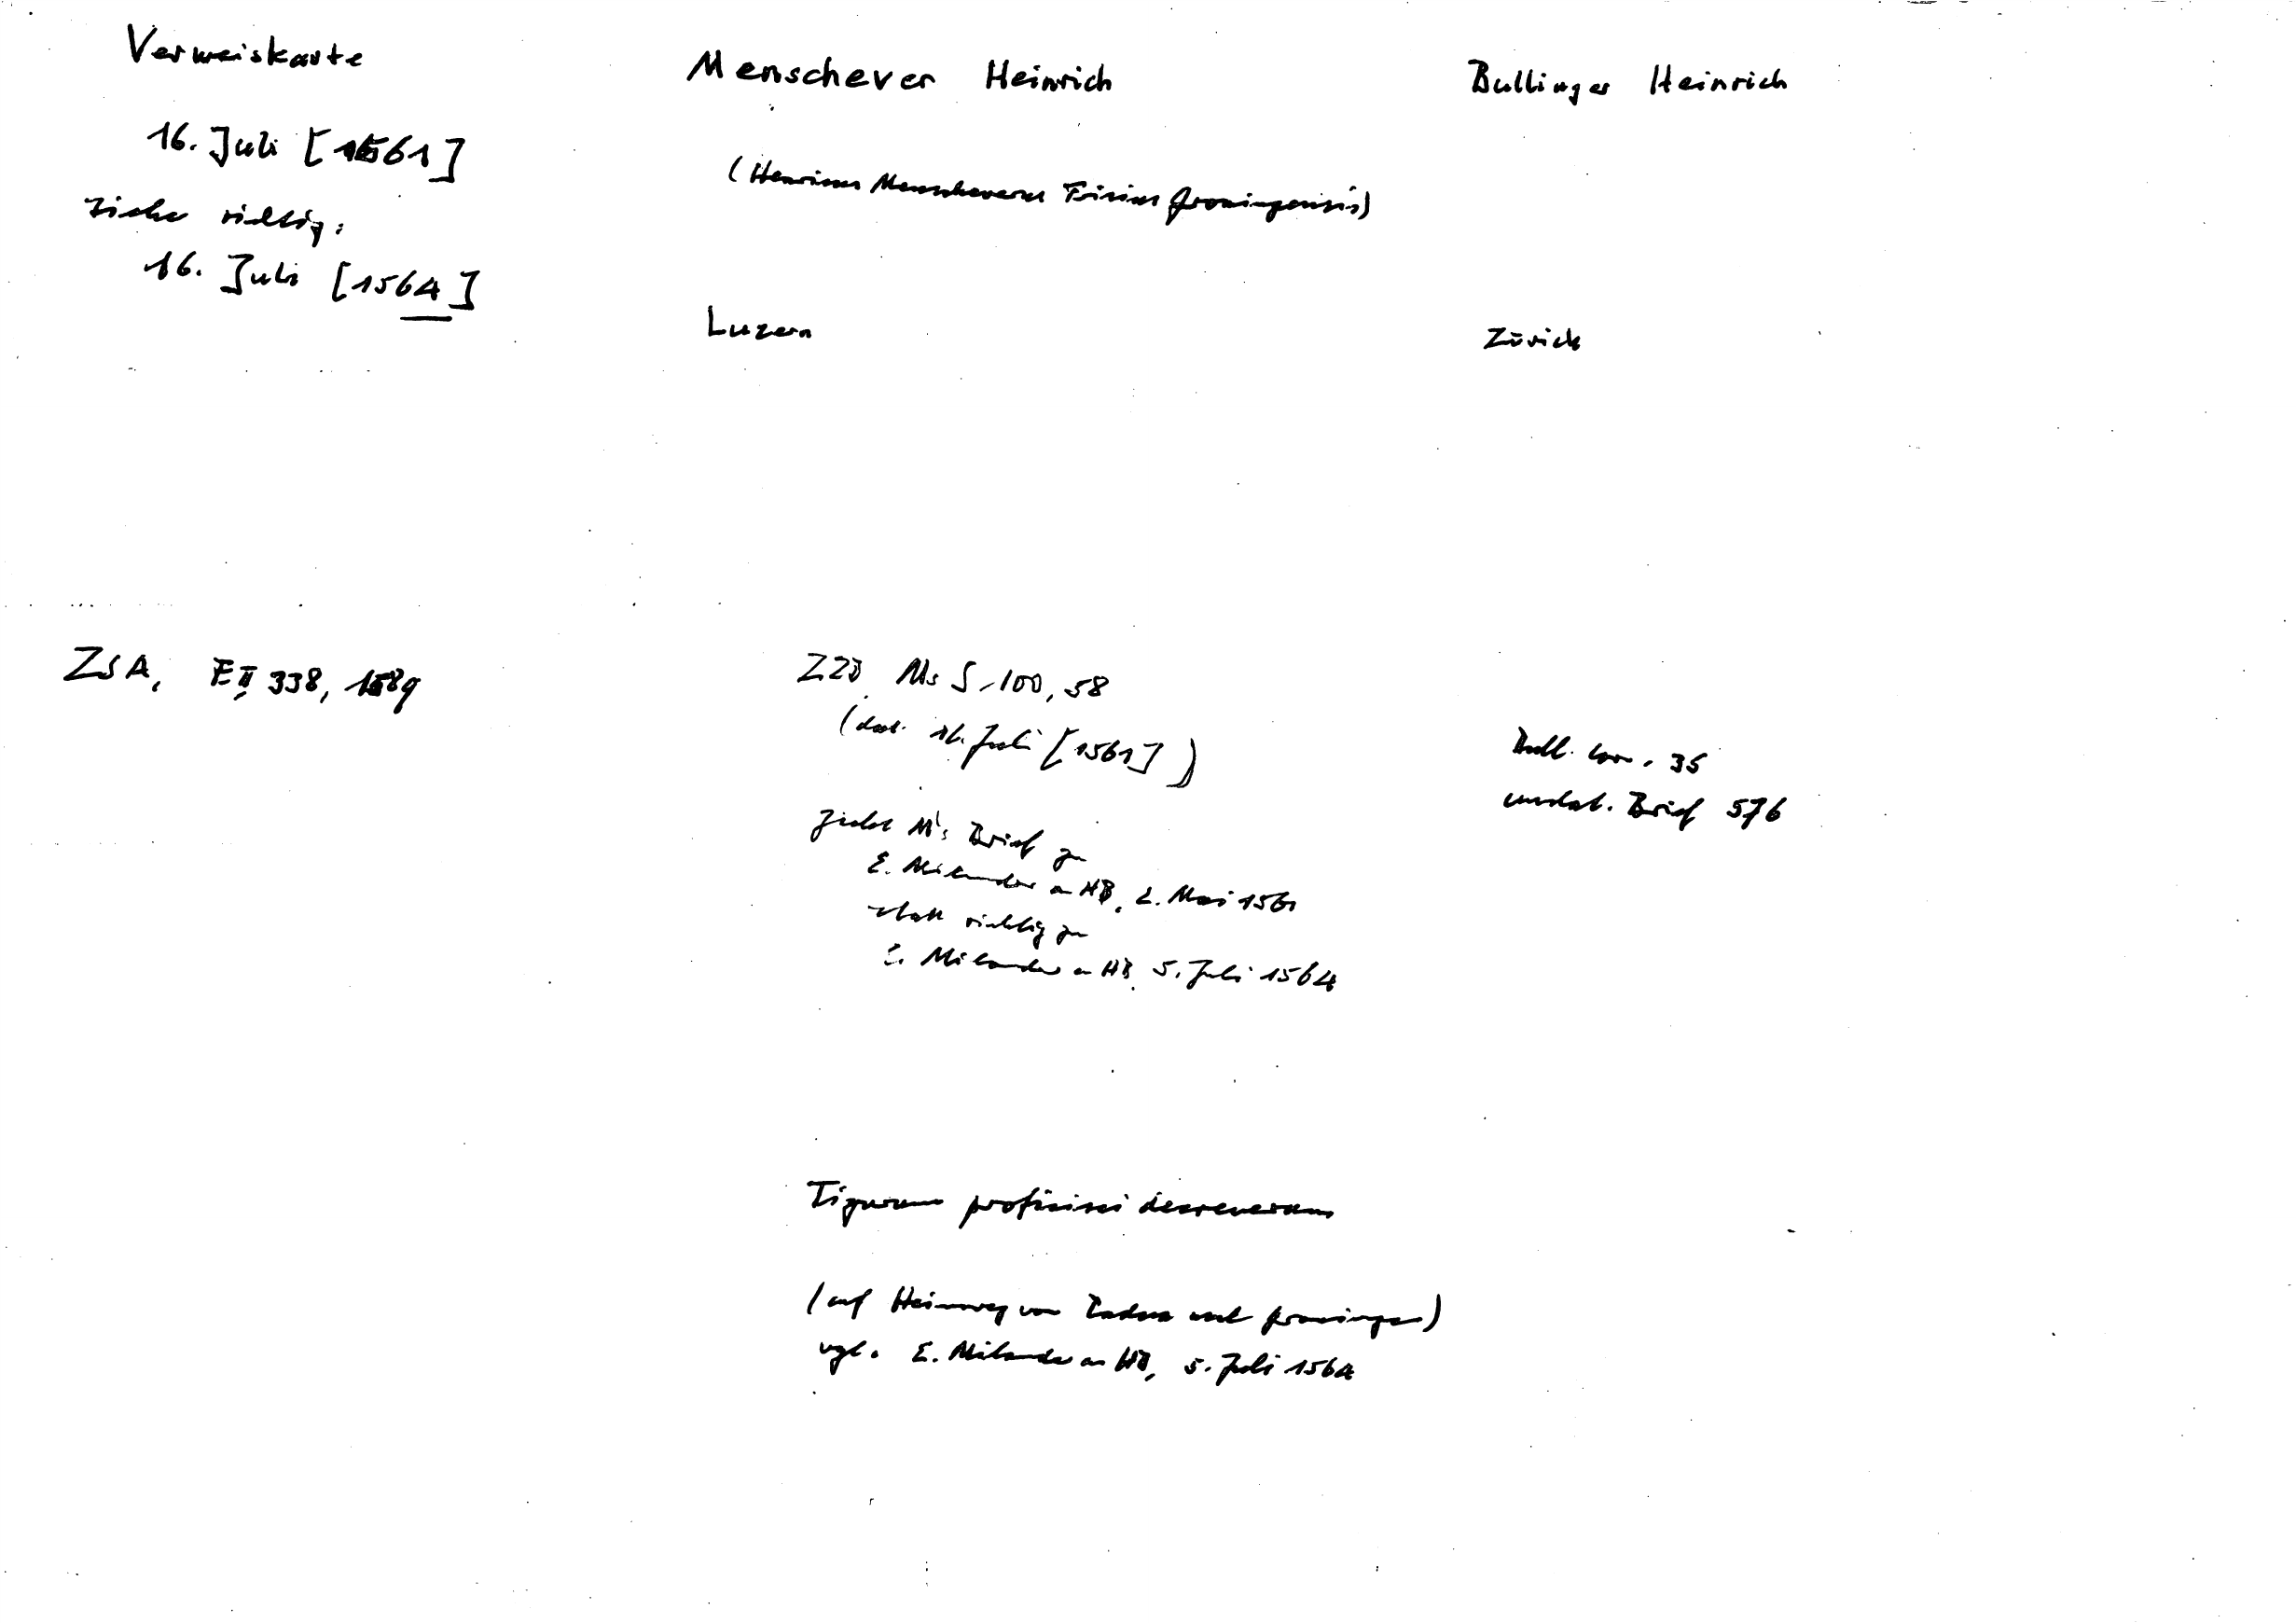 Verweiskarte
16. Juli [1561]
siehe richtig:
16. Juli [1564]
Menschever Heinrich
(Henricus Menscheverus Frisius Groningensis)
Luzern
Bullinger Heinrich
Zürich
ZSA, E II 338, 1589
ZZB Ms S-100, 58
(dat. 16. Juli [1561])
Bull. Corr. 35
undat. Brief 576
M's Brief zu
E. Milander an HB, 2. Mai 1561
statt richtig zu
E. Milander an HB, 5. Juli 1564
Tigurum proficisci decreveram
(auf Heimweg von Padua nach Groningen)
vgl. E. Milander an HB, 5. Juli 1564